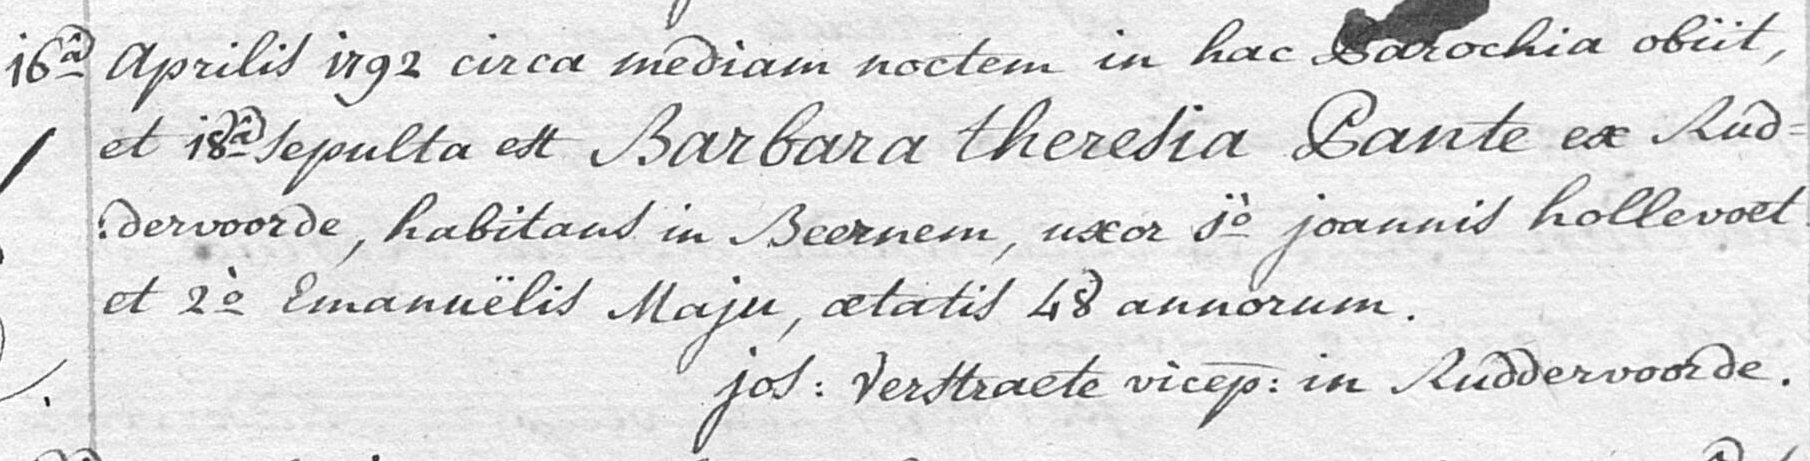 16â Aprilis 1792 circa mediam noctem in hac Parochia obiit,
et 18â sepulta est Barbara theresia Pante ex Rud=
:dervoorde, habitans in Beernem, uxor 1º joannis hollevoet
et 2º Emanuëlis Maju, ætatis 48 annorum.
jos: Verstraete vicep: in Ruddervoorde.